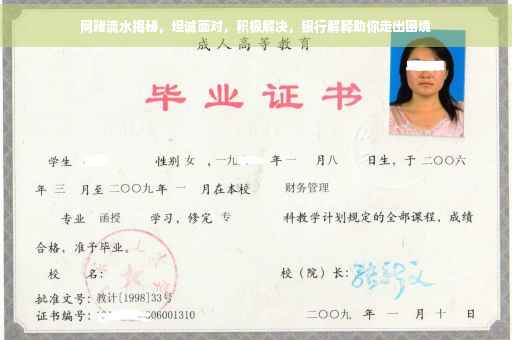 阿赌流水揭秘，坦诚面对，积极解决，银行解释助你走出困境
成人高等教育
毕业证书
学生 性别 女 ，一九 年 一 月 八 日生，于 二〇〇六
年 三 月至 二〇〇九 年 一 月在本校 财务管理
专业 函授 学习，修完 专 科教学计划规定的全部课程，成绩
合格，准予毕业。
校 名： 校（院）长：
批准文号：教计[1998]33号
证书编号： 06001310 二〇〇九 年 一 月 十 日